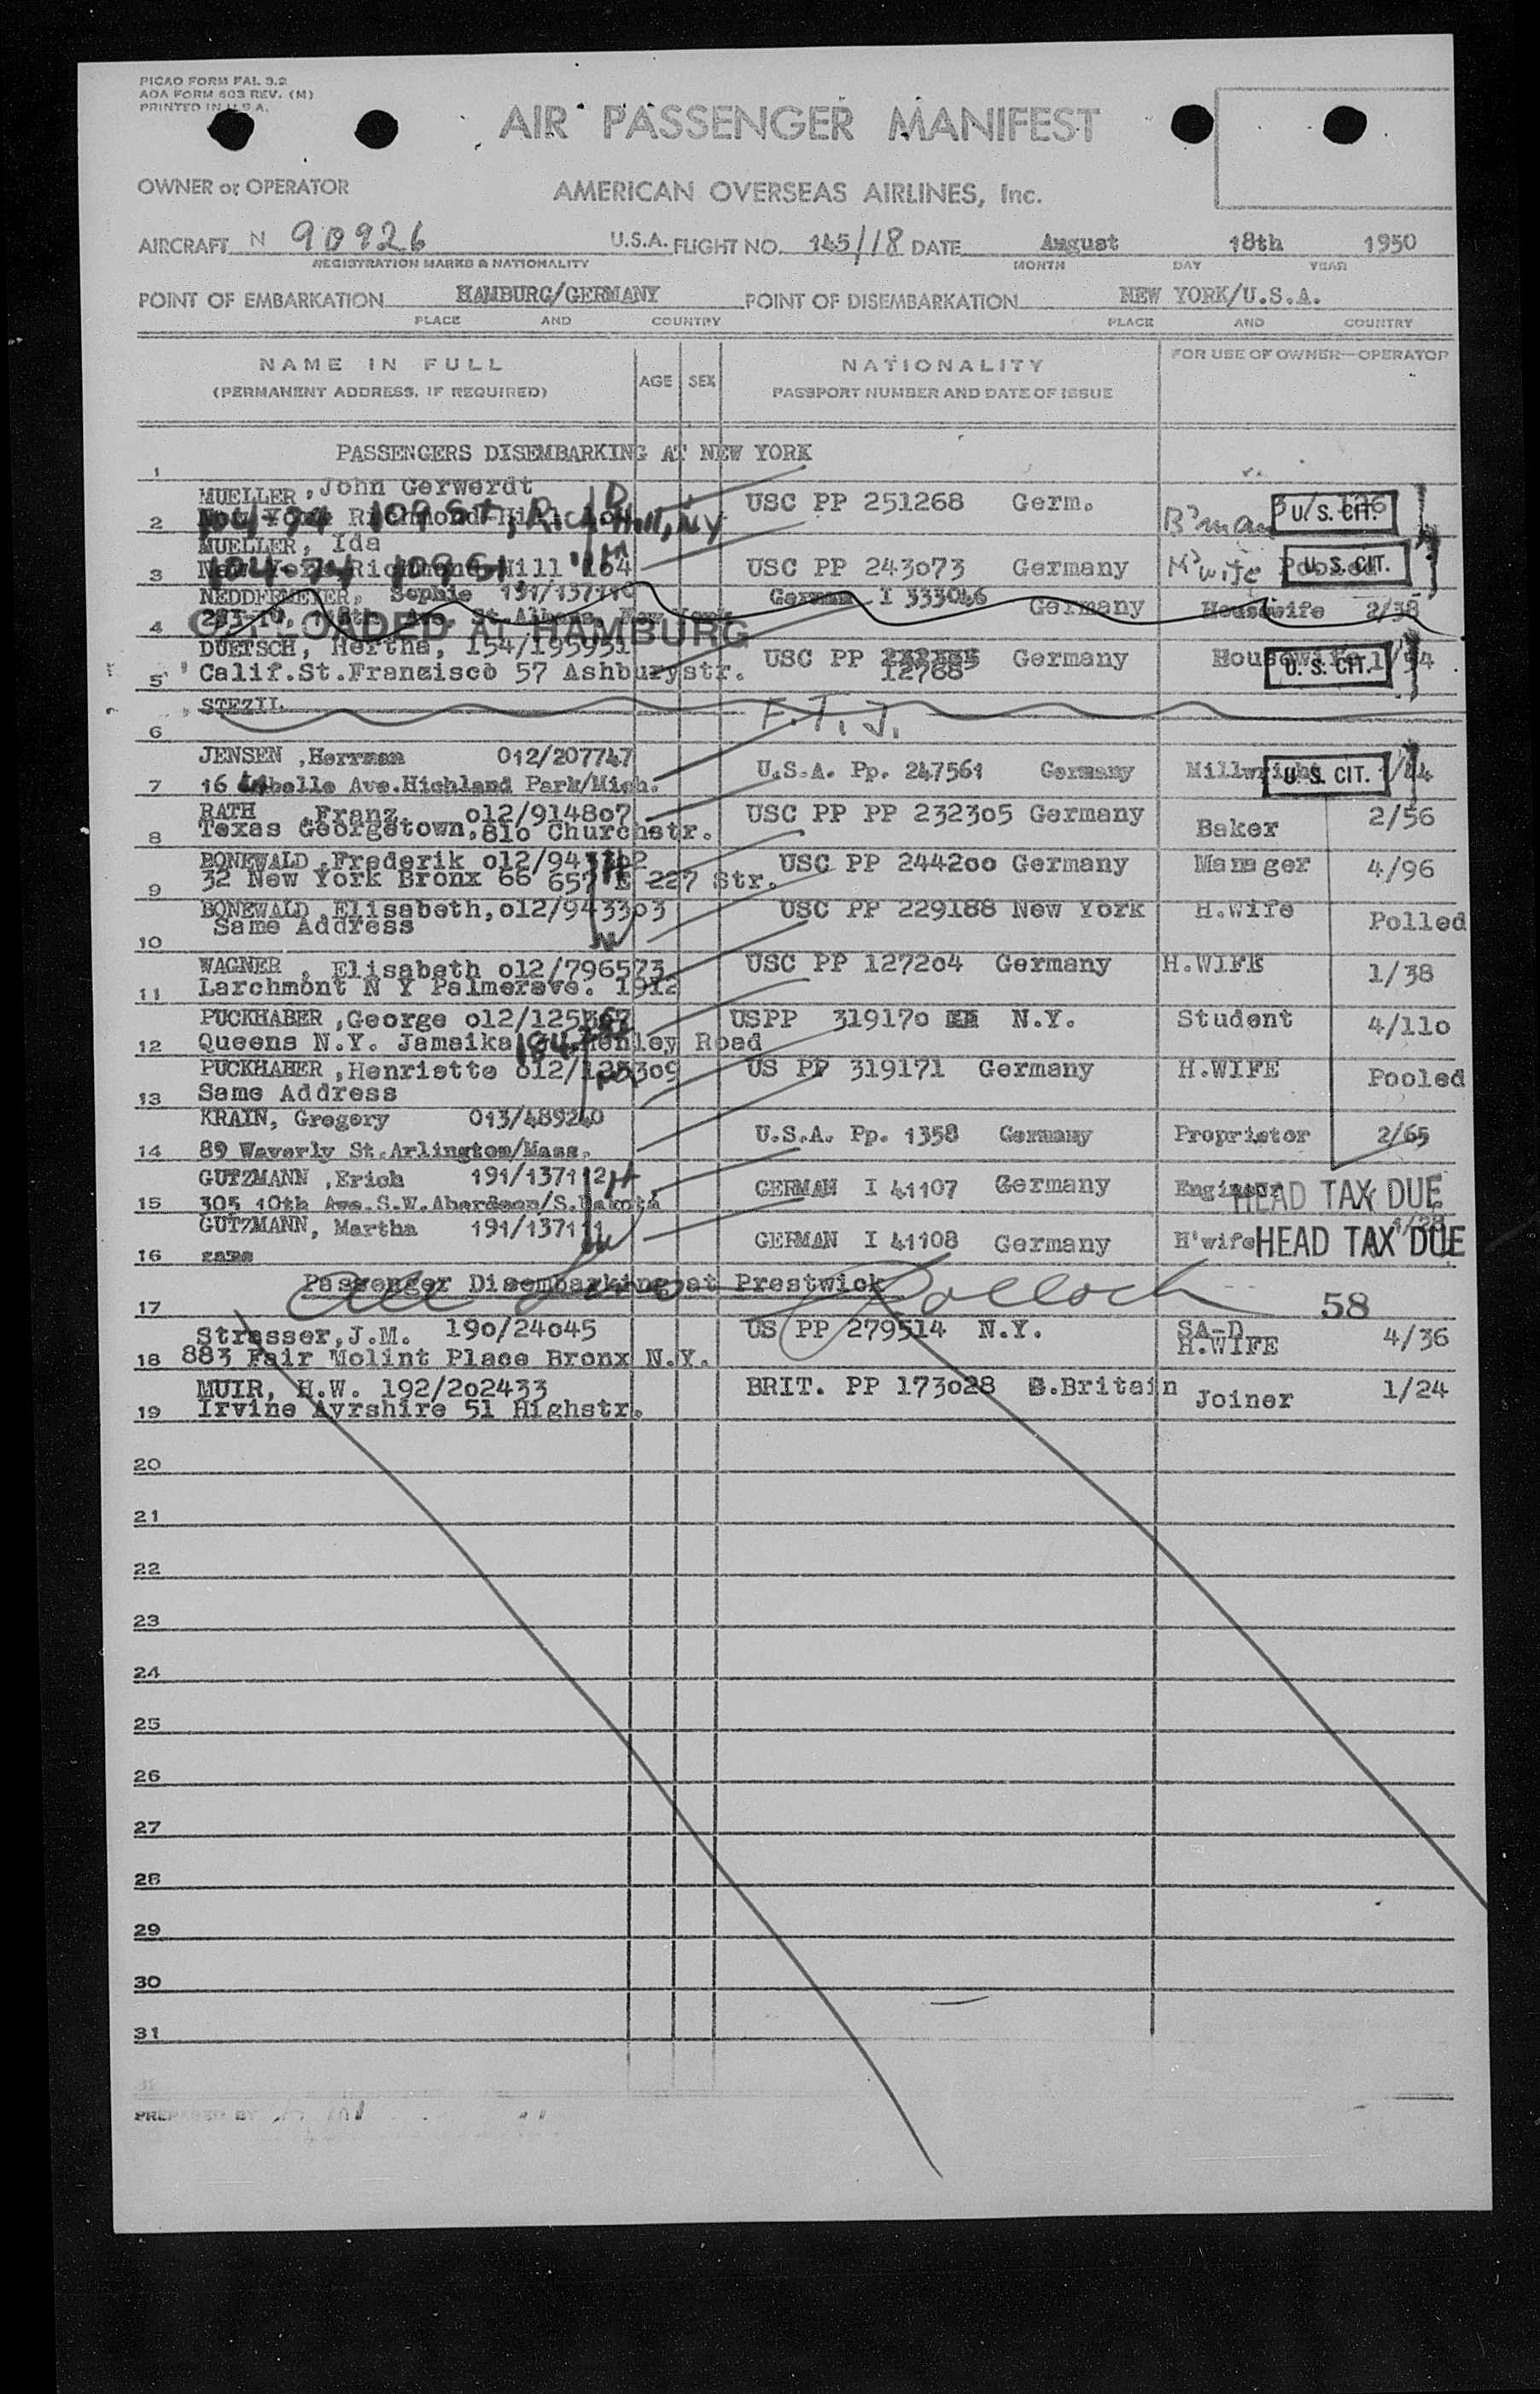 PICAO FORM FAL 3.2
AOA FORM 603 REV. (M)
PRINTED IN U.S.A.
AIR PASSENGER MANIFEST
OWNER or OPERATOR AMERICAN OVERSEAS AIRLINES, Inc.
AIRCRAFT N 90926 U.S.A. FLIGHT NO. 145/18 DATE August 18th 1950
REGISTRATION MARKS & NATIONALITY MONTH DAY YEAR
POINT OF EMBARKATION HAMBURG/GERMANY POINT OF DISEMBARKATION NEW YORK/U.S.A.
PLACE AND COUNTRY PLACE AND COUNTRY
NAME IN FULL AGE SEX NATIONALITY FOR USE OF OWNER—OPERATOR
(PERMANENT ADDRESS, IF REQUIRED) PASSPORT NUMBER AND DATE OF ISSUE
PASSENGERS DISEMBARKING AT NEW YORK
1
MUELLER, John Gerwerdt USC PP 251268 Germ. B'man U.S. CIT.
2 104-74 109 St, Rich Hill, NY
MUELLER, Ida USC PP 243073 Germany H'wife U.S. CIT.
3 104-74 109 St
NEDDERMEYER, Sophie 191/137110 German I 333046 Germany Housewife 2/38
Ave. St. Albans, New York
4 OFFLOADED AT HAMBURG
DUETSCH, Hertha, 154/195951 USC PP 12768 Germany Housewife U.S. CIT.
5 Calif.St.Francisco 57 Ashburystr.
STEZYL F.T.J.
6
JENSEN ,Herrman 012/207747 U.S.A. Pp. 247561 Germany Millwright U.S. CIT.
7 16 Labelle Ave.Highland Park/Mich.
RATH ,Franz o12/914807 USC PP PP 232305 Germany Baker 2/56
8 Texas Georgetown,81o Churchstr.
BONEWALD ,Frederik o12/943302 USC PP 2442oo Germany Manager 4/96
9 32 New York Bronx 66 657 E 227 Str.
BONEWALD Elisabeth,o12/943303 USC PP 229188 New York H.Wife Polled
Same Address
10
WAGNER , Elisabeth o12/796573 USC PP 1272o4 Germany H.WIFE 1/38
11 Larchmont N Y Palmersve. 1912
PUCKHABER ,George o12/125367 USPP 31917o N.Y. Student 4/11o
12 Queens N.Y. Jamaika Henley Road
PUCKHABER ,Henriette o12/125309 US PP 319171 Germany H.WIFE Pooled
13 Same Address
KRAIN, Gregory 013/489240 U.S.A. Pp. 1358 Germany Proprietor 2/65
14 89 Waverly St.Arlington/Mass.
GUTZMANN ,Erich 191/137112 GERMAN I 41107 Germany Engineer HEAD TAX DUE
15 305 10th Ave.S.W.Aberdeen/S.Dakota
GUTZMANN, Martha 191/137111 GERMAN I 41108 Germany H'wife HEAD TAX DUE
16 same
Passenger Disembarking at Prestwick
17 58
Strasser,J.M. 19o/24o45 US PP 279514 N.Y. SA-D H.WIFE 4/36
18 883 Fair Molint Place Bronx N.Y.
MUIR, H.W. 192/2o2433 BRIT. PP 173o28 G.Britain Joiner 1/24
19 Irvine Ayrshire 51 Highstr.
20
21
22
23
24
25
26
27
28
29
30
31
PREPARED BY